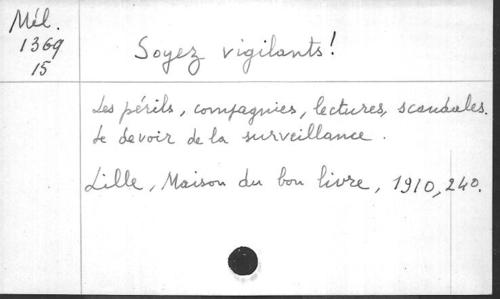 Mél.
1369
15
Soyez vigilants!
Les périls, compagnies, lectures, scandales.
Le devoir de la surveillance.
Lille, Maison du bon livre, 1910, 240.